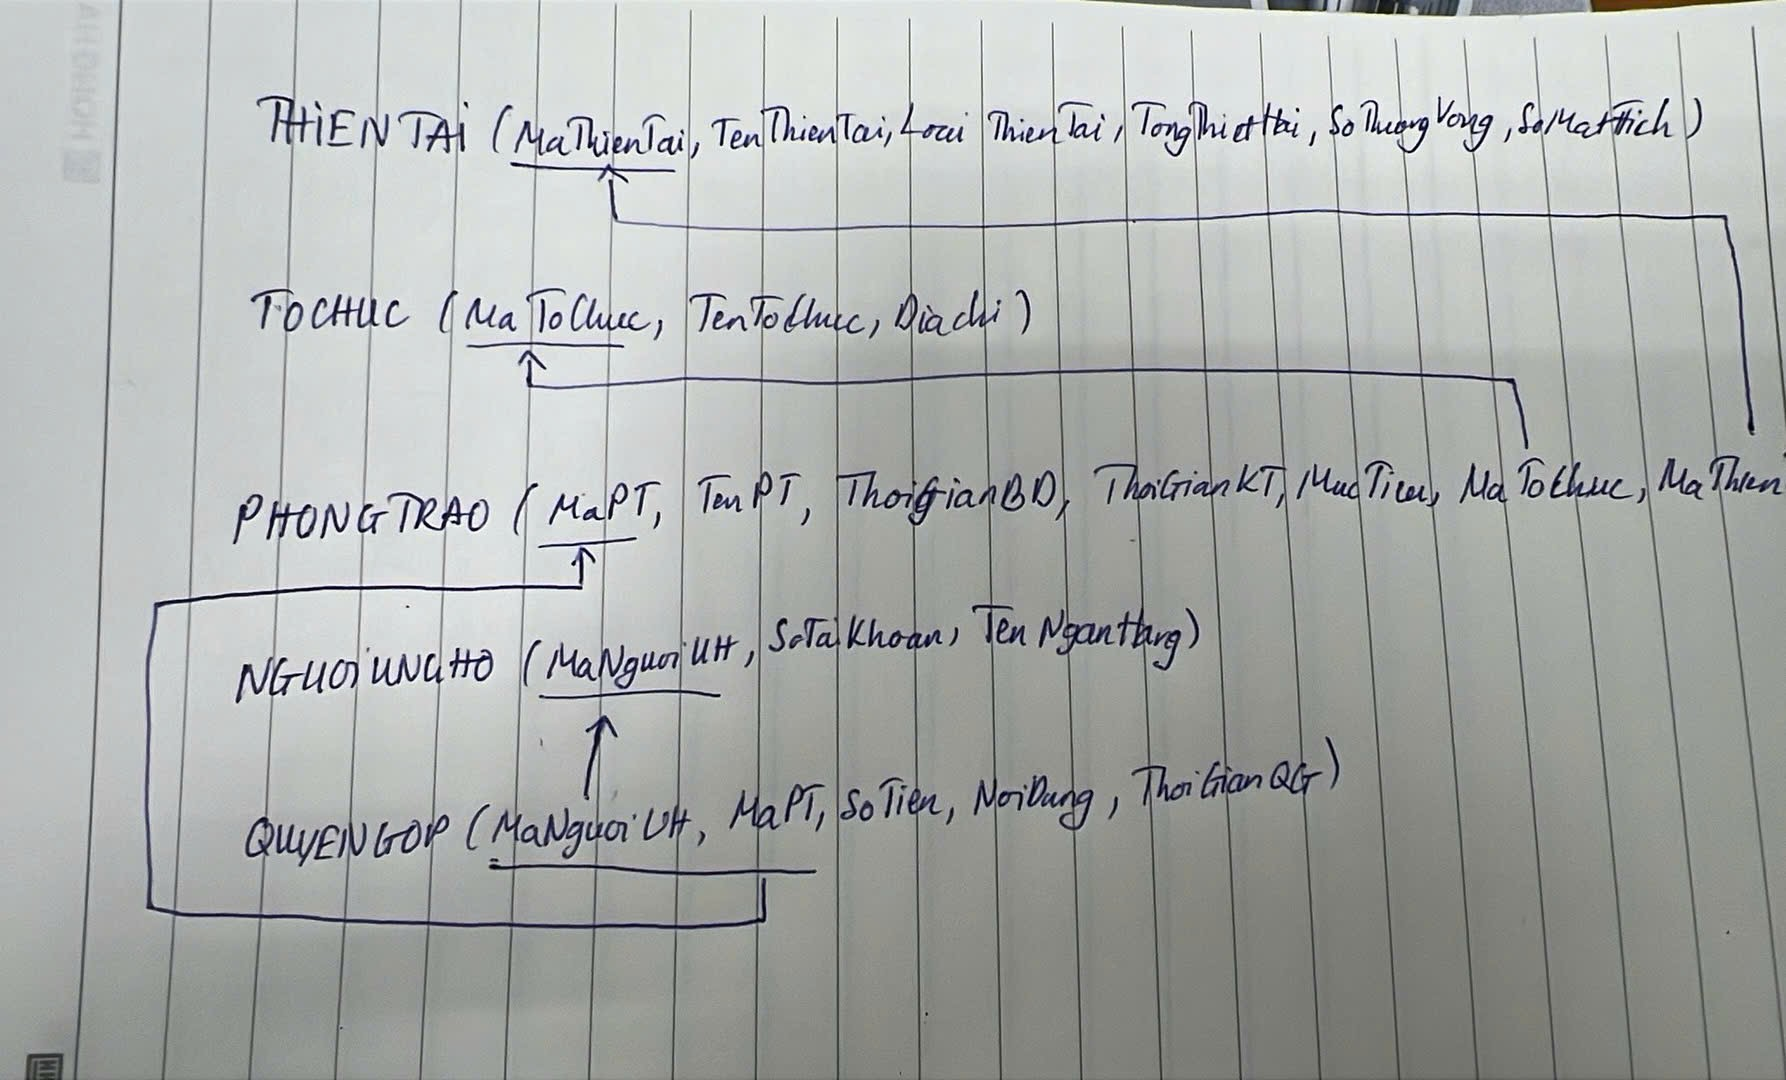 THIENTAI (MaThienTai, TenThienTai, Loai ThienTai, TongThietHai, SoThuongVong, SoMatTich)
TOCHUC (MaToChuc, TenToChuc, Diachi)
PHONGTRAO (MaPT, TenPT, ThoiGianBD, ThoiGianKT, MucTieu, MaToChuc, MaThien
NGUOIUNGHO (MaNguoiUH, SoTaiKhoan, TenNganHang)
QUYENGOP (MaNguoiUH, MaPT, SoTien, NoiDung, ThoiGianQG)